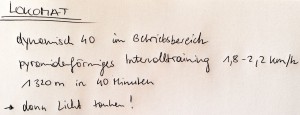 LOKOMAT
dynamisch 40 im Betriebsbereich
pyramidenförmiges Intervalltraining 1,8-2,2 km/h
1320 m in 40 Minuten
→ dann Licht